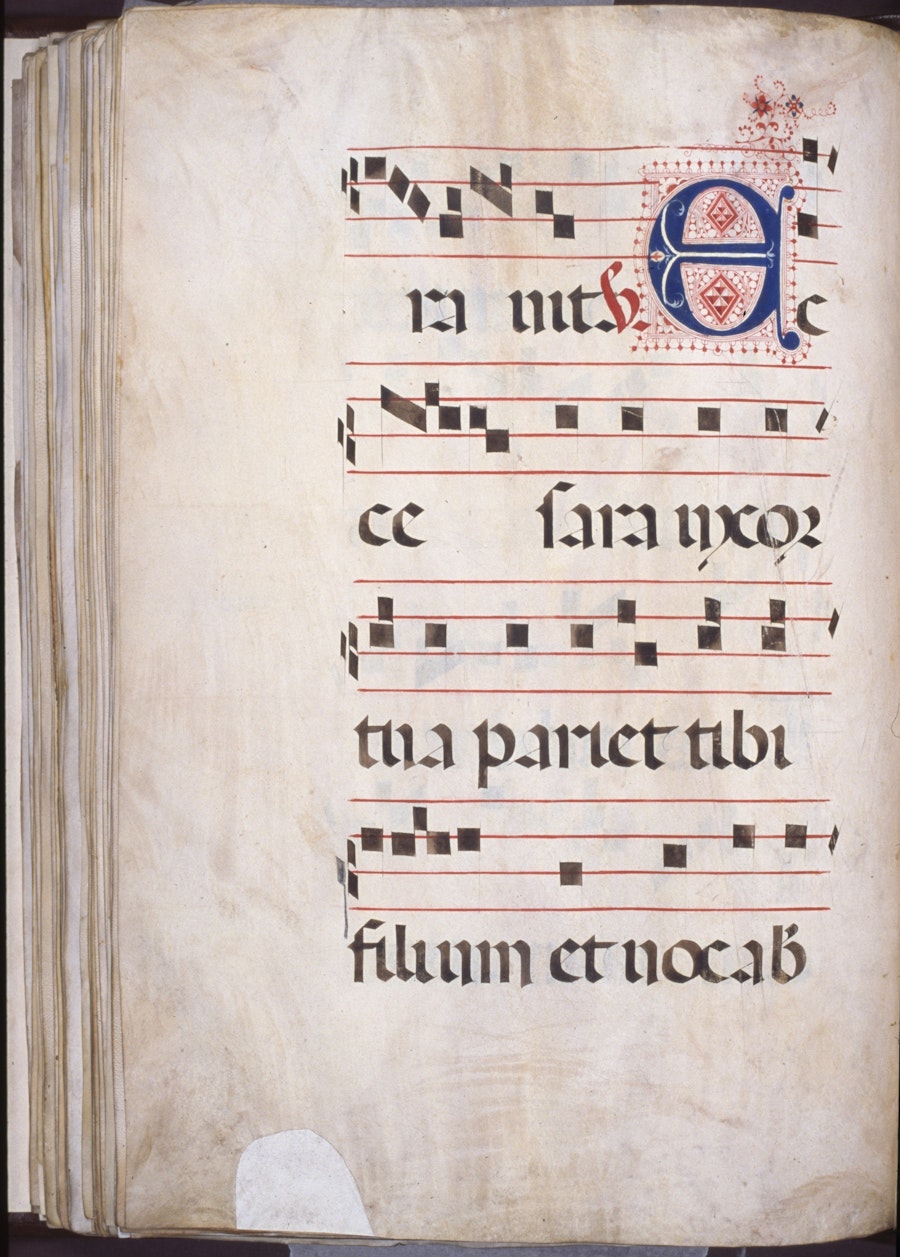 ra uit. ℣. Ec
ce sara uxor
tua pariet tibi
filium et uocab